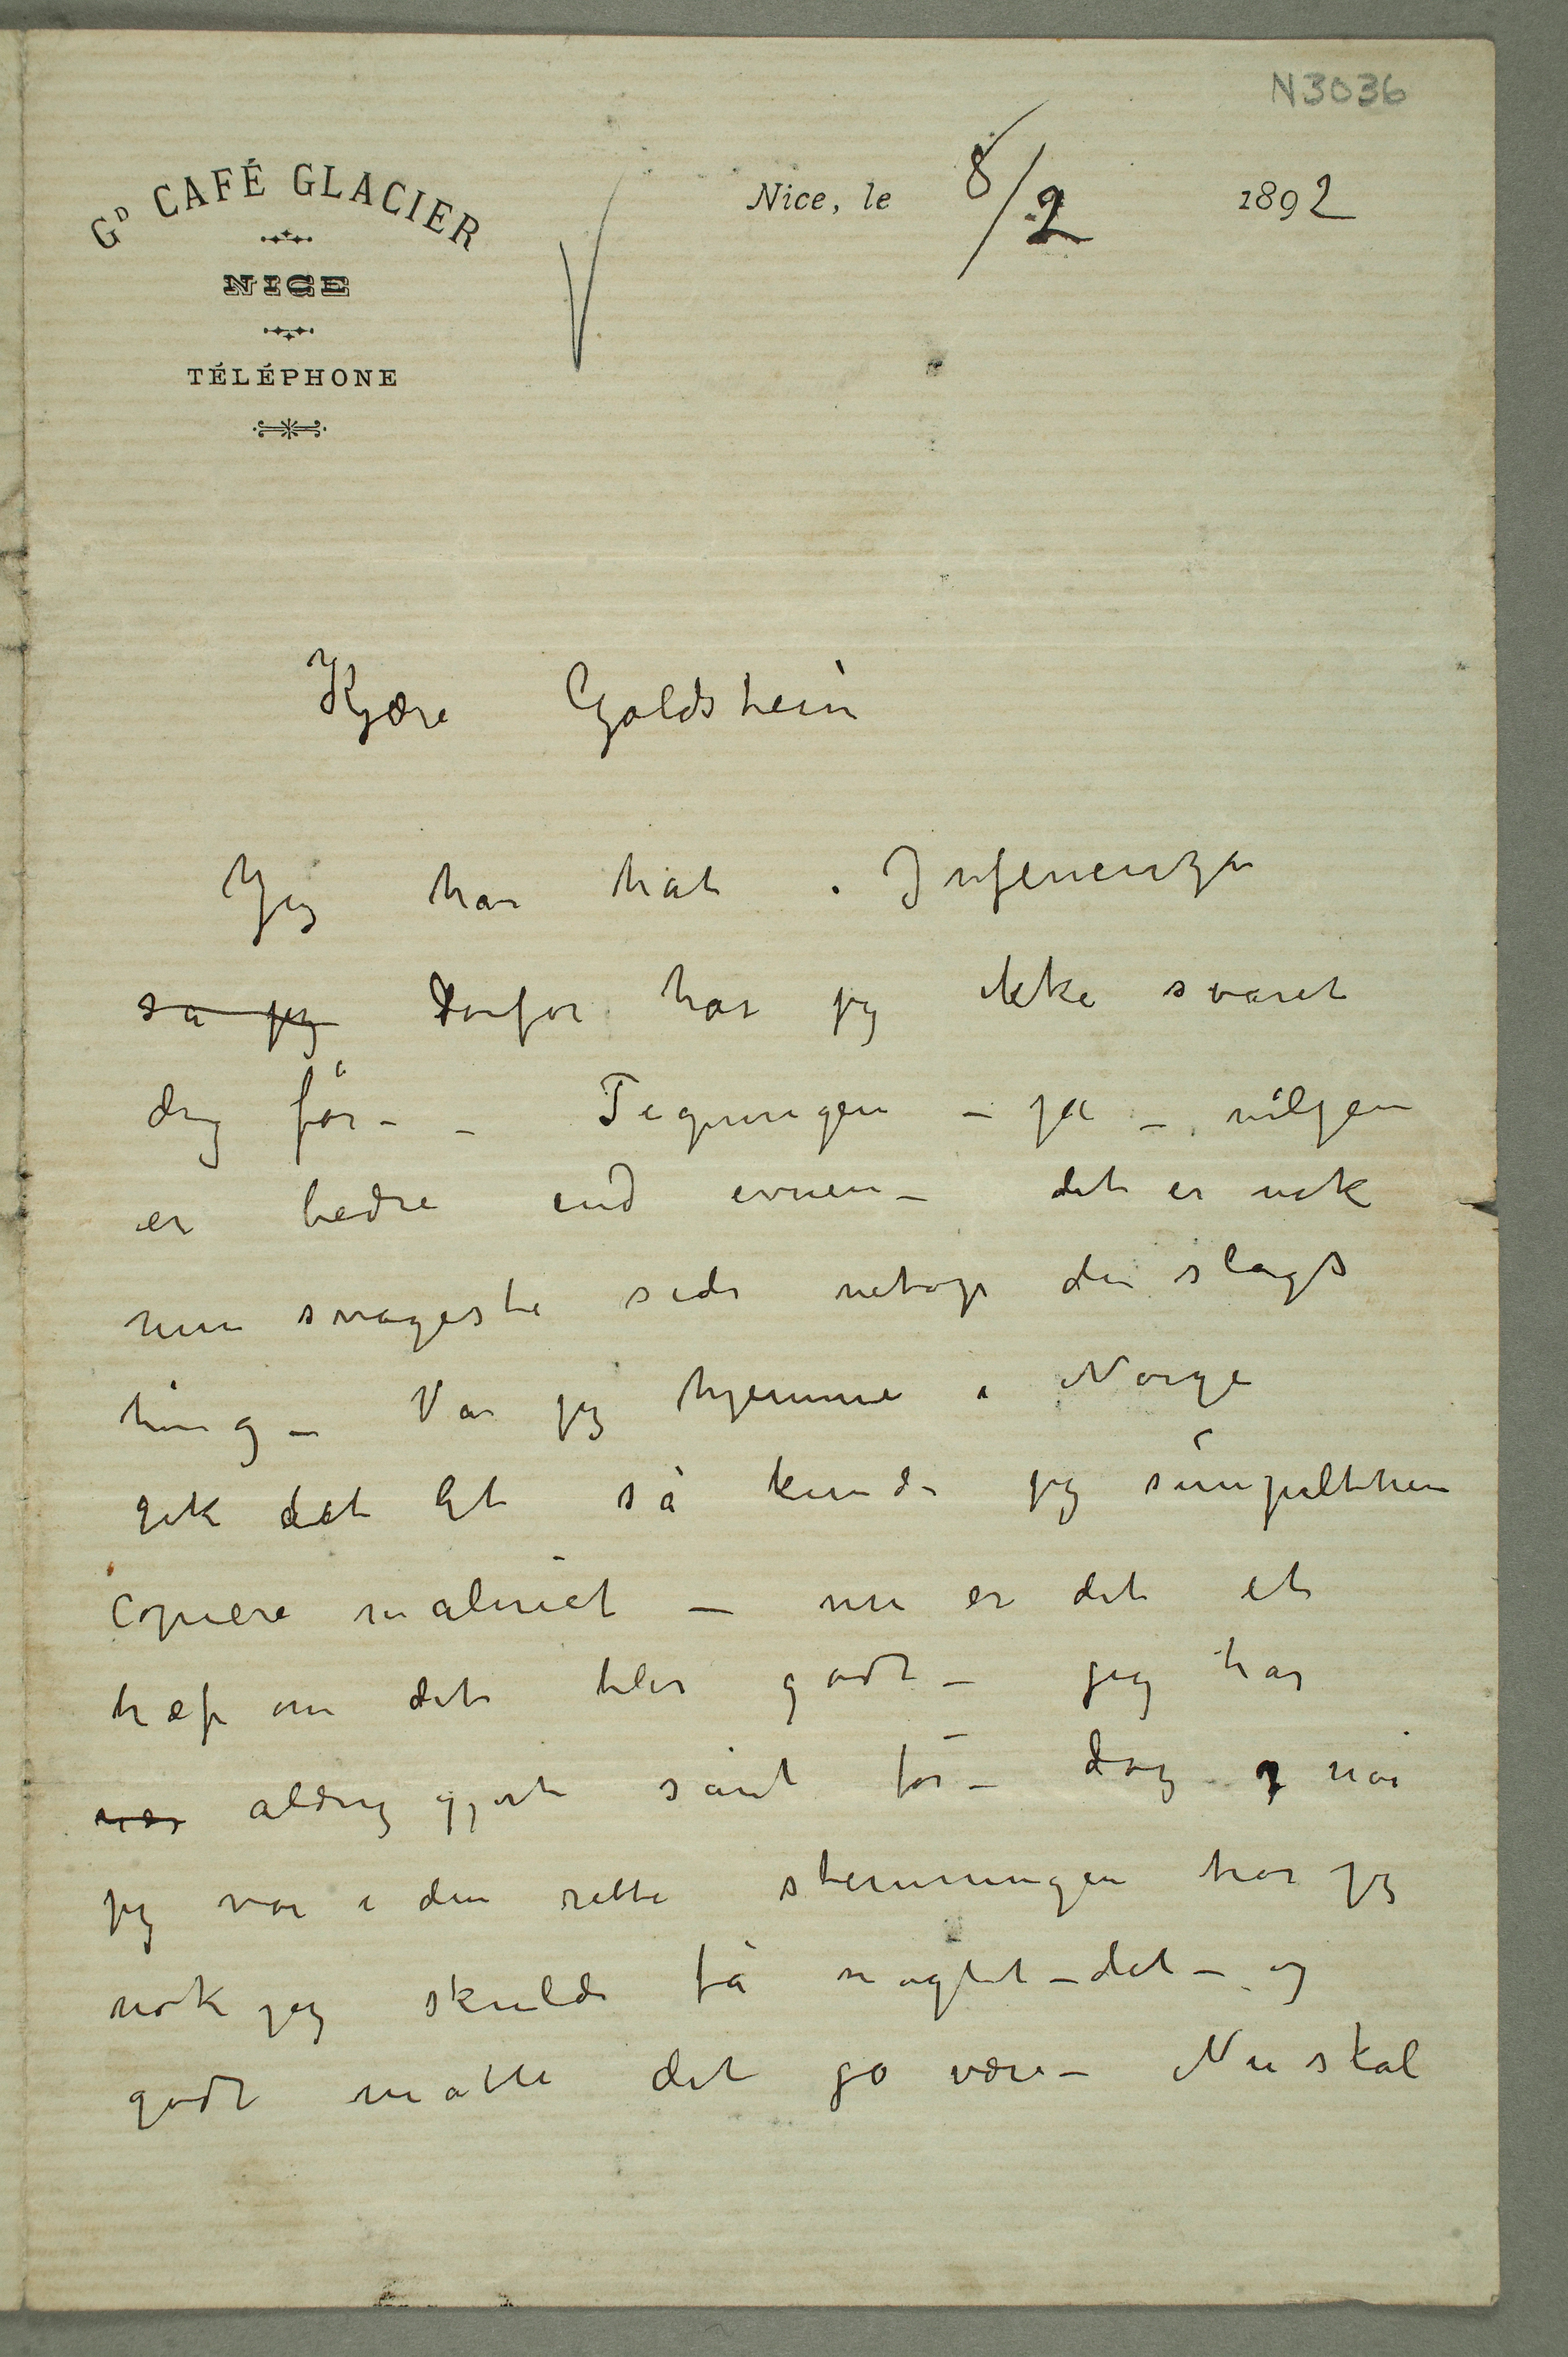 N3036
GD CAFÉ GLACIER
NICE
TÉLÉPHONE
Nice, le 8/2 1892
Kjære Goldstein
Jeg har hat Infleuenza
så jeg Dorfor har jeg ikke svaret
dig før – – Tegningen – ja – viljen
er bedre end evnen – det er nok
min svageste side netop den slags
ting – Var jeg hjemme i Norge
gik det let så kunde jeg simpelthen
copiere maleriet – nu er det et
træf om det blir godt – jeg har
aldrig gjort sånt før – dog når
jeg var i den rette stemningen tror jeg
nok jeg skulde få noget – det – og
godt måtte det jo være – Nu skal